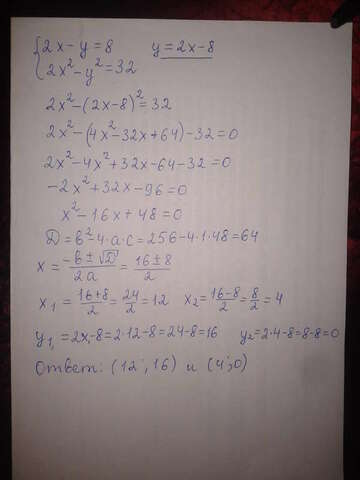 {2x-y=8 y=2x-8
2x²-y²=32
2x²-(2x-8)²=32
2x²-(4x²-32x+64)-32=0
2x²-4x²+32x-64-32=0
-2x²+32x-96=0
x²-16x+48=0
D=b²-4·a·c=256-4·1·48=64
x=(-b±√D)/2a=(16±8)/2
x₁=(16+8)/2=24/2=12 x₂=(16-8)/2=8/2=4
y₁=2x-8=2·12-8=24-8=16 y₂=2·4-8=8-8=0
Ответ: (12;16) и (4;0)